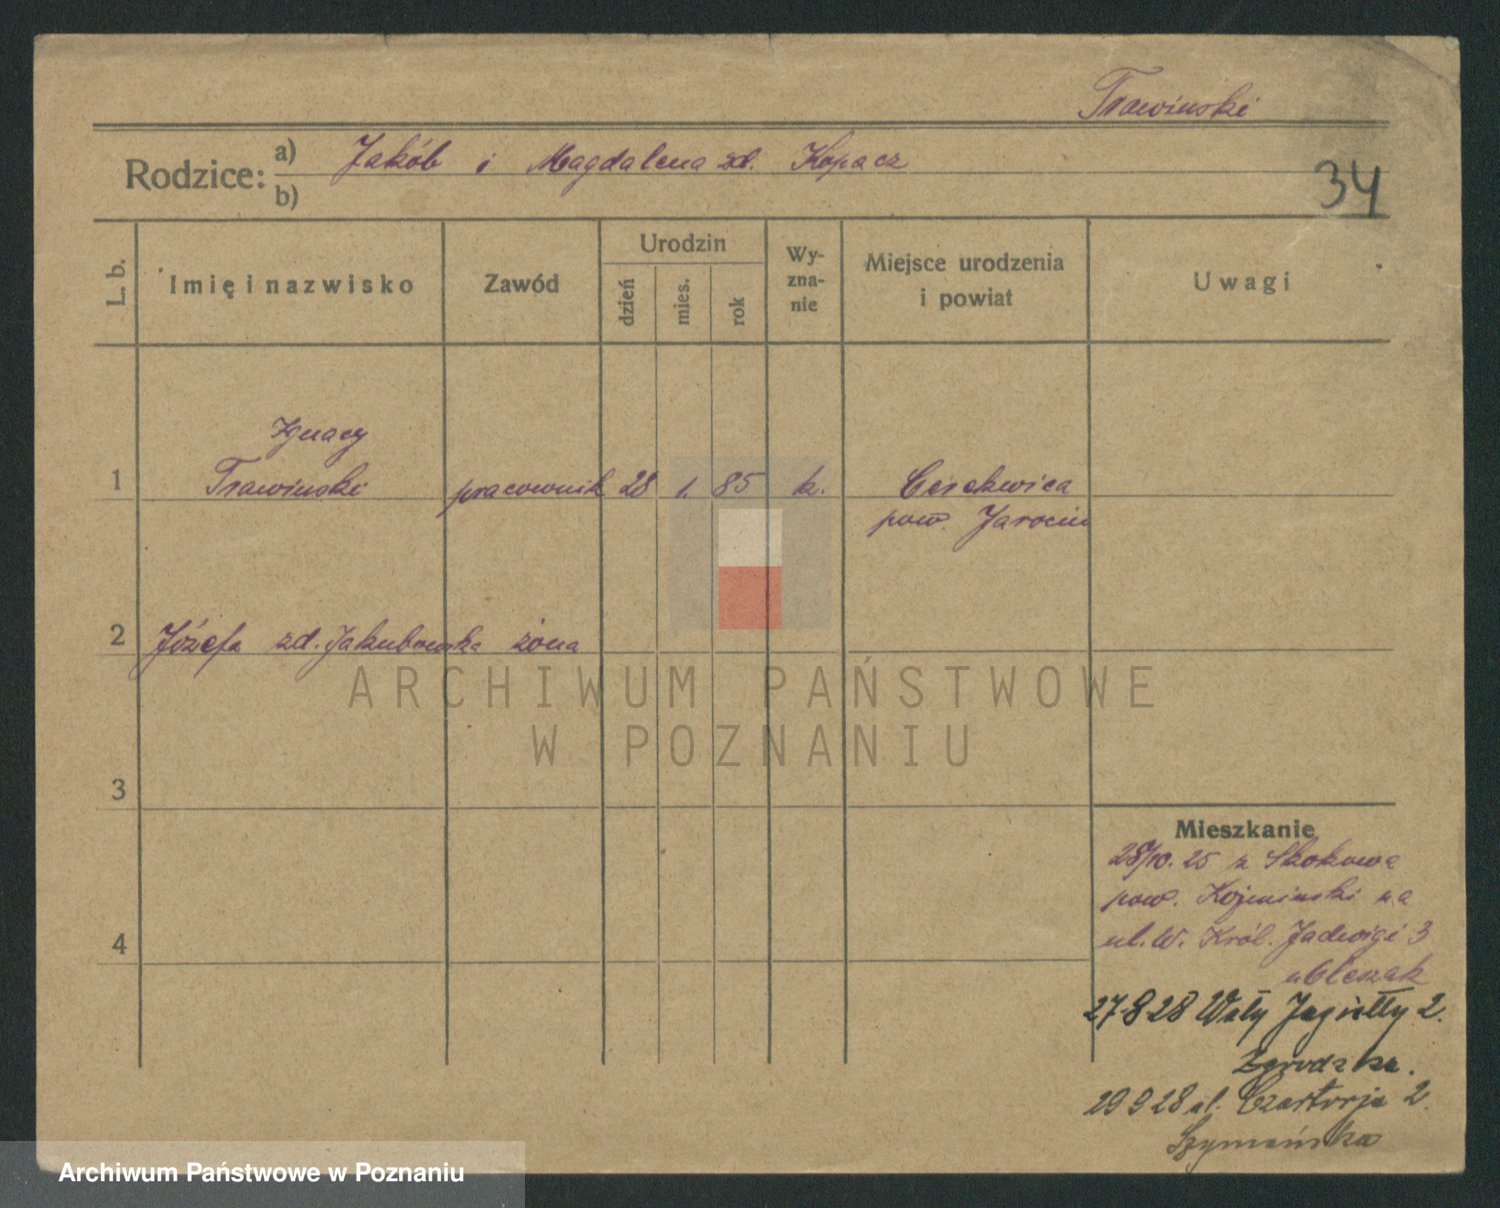 Trawinski
Rodzice: a) Jakób i Magdalena zd. Kopacz
b)
34
L. b.
Imię i nazwisko
Zawód
Urodzin
dzień
mies.
rok
Wy-
zna-
nie
Miejsce urodzenia
i powiat
Uwagi
Ignacy
1 Trawinski pracownik 28 1. 85 k. Cerekwica
pow. Jarocin
2 Józefa zd. Jakubowska żona
ARCHIWUM PAŃSTWOWE
W POZNANIU
3
Mieszkanie
28/10. 25 z Skokowa
pow. Kozminski na
4
ul. W. Król. Jadwigi 3
27-8 28 Wały Jagiełły 2.
29 9 28 ul. Czartorja 2.
Szymańska
Archiwum Państwowe w Poznaniu